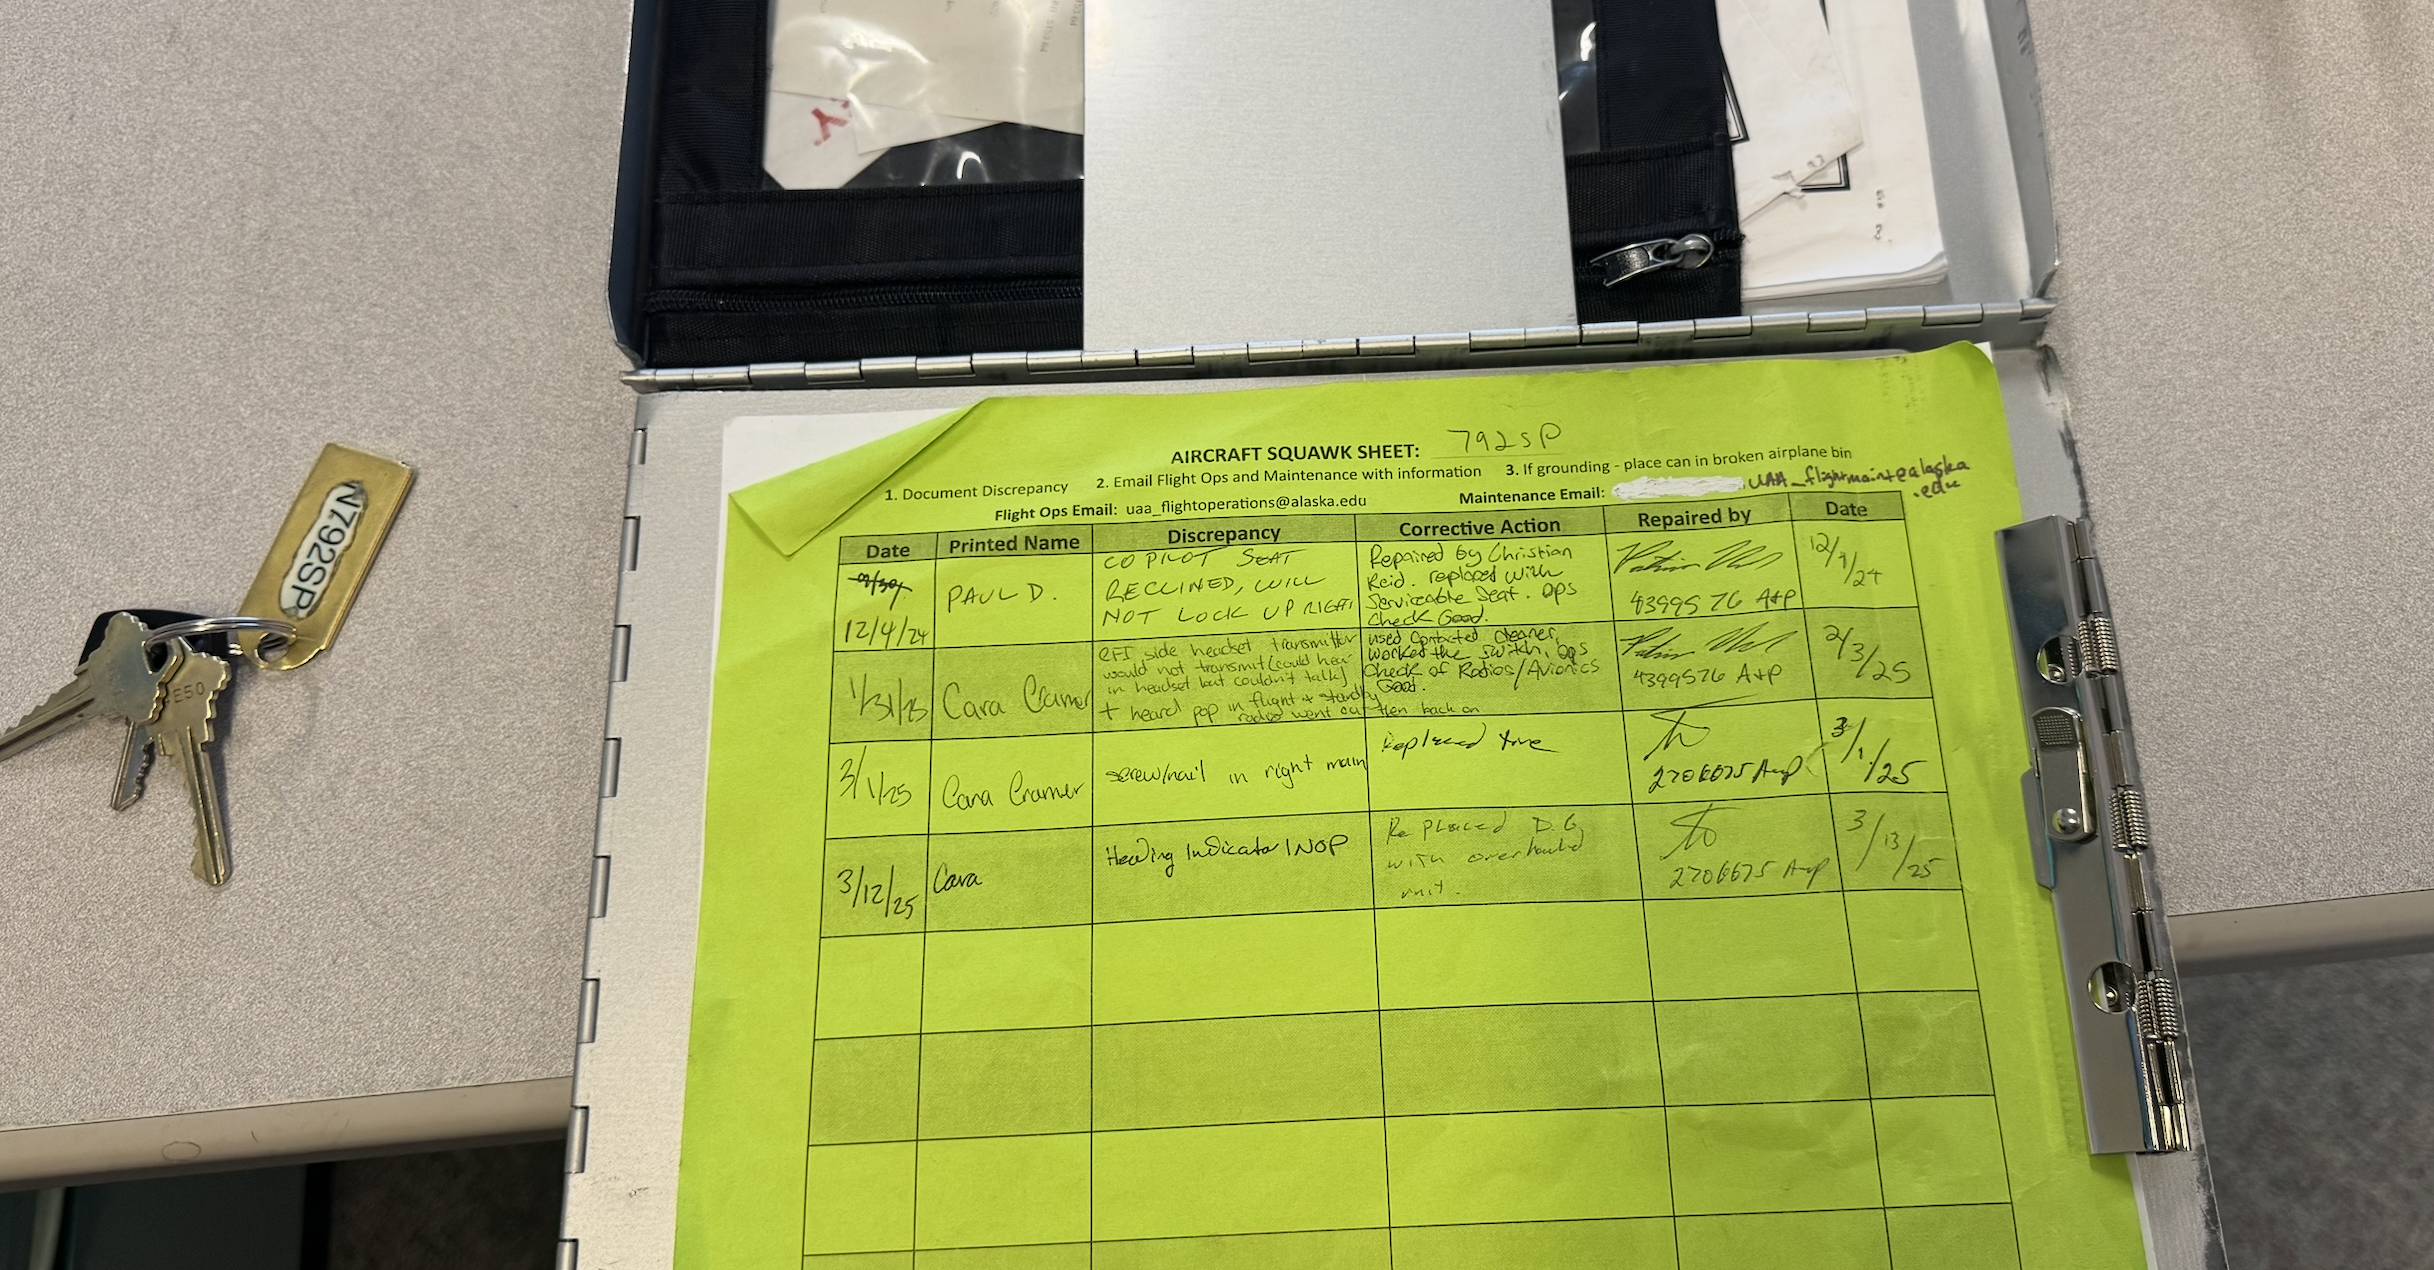 N792SP
E50
AIRCRAFT SQUAWK SHEET: 792SP
1. Document Discrepancy 2. Email Flight Ops and Maintenance with information 3. If grounding - place can in broken airplane bin
Flight Ops Email: uaa_flightoperations@alaska.edu Maintenance Email: UAA_flightmaint@alaska
.edu
Date Printed Name Discrepancy Corrective Action Repaired by Date
12/4/24
PAUL D.
CO PILOT SEAT
RECLINED, WILL
NOT LOCK UPRIGHT
Repaired by Christian
Reid. replaced with
Serviceable Seat. Ops
Check Good.
4399576 A+P
1/31/25
Cara Cramer
CFI side headset transmitter
would not transmit (could hear
in headset but couldn't talk)
+ heard pop in flight + standby
radios went out then back on
used Contacted cleaner,
worked the switch, Ops
Check of Radios/Avionics
Good.
4399576 A+P
2/3/25
3/1/25
Cara Cramer
screw/nail in right main
Replaced tire
A+P
3/1/25
3/12/25
Cara
Heading Indicator INOP
Replaced D.G
with overhauled
unit.
A+P
3/13/25